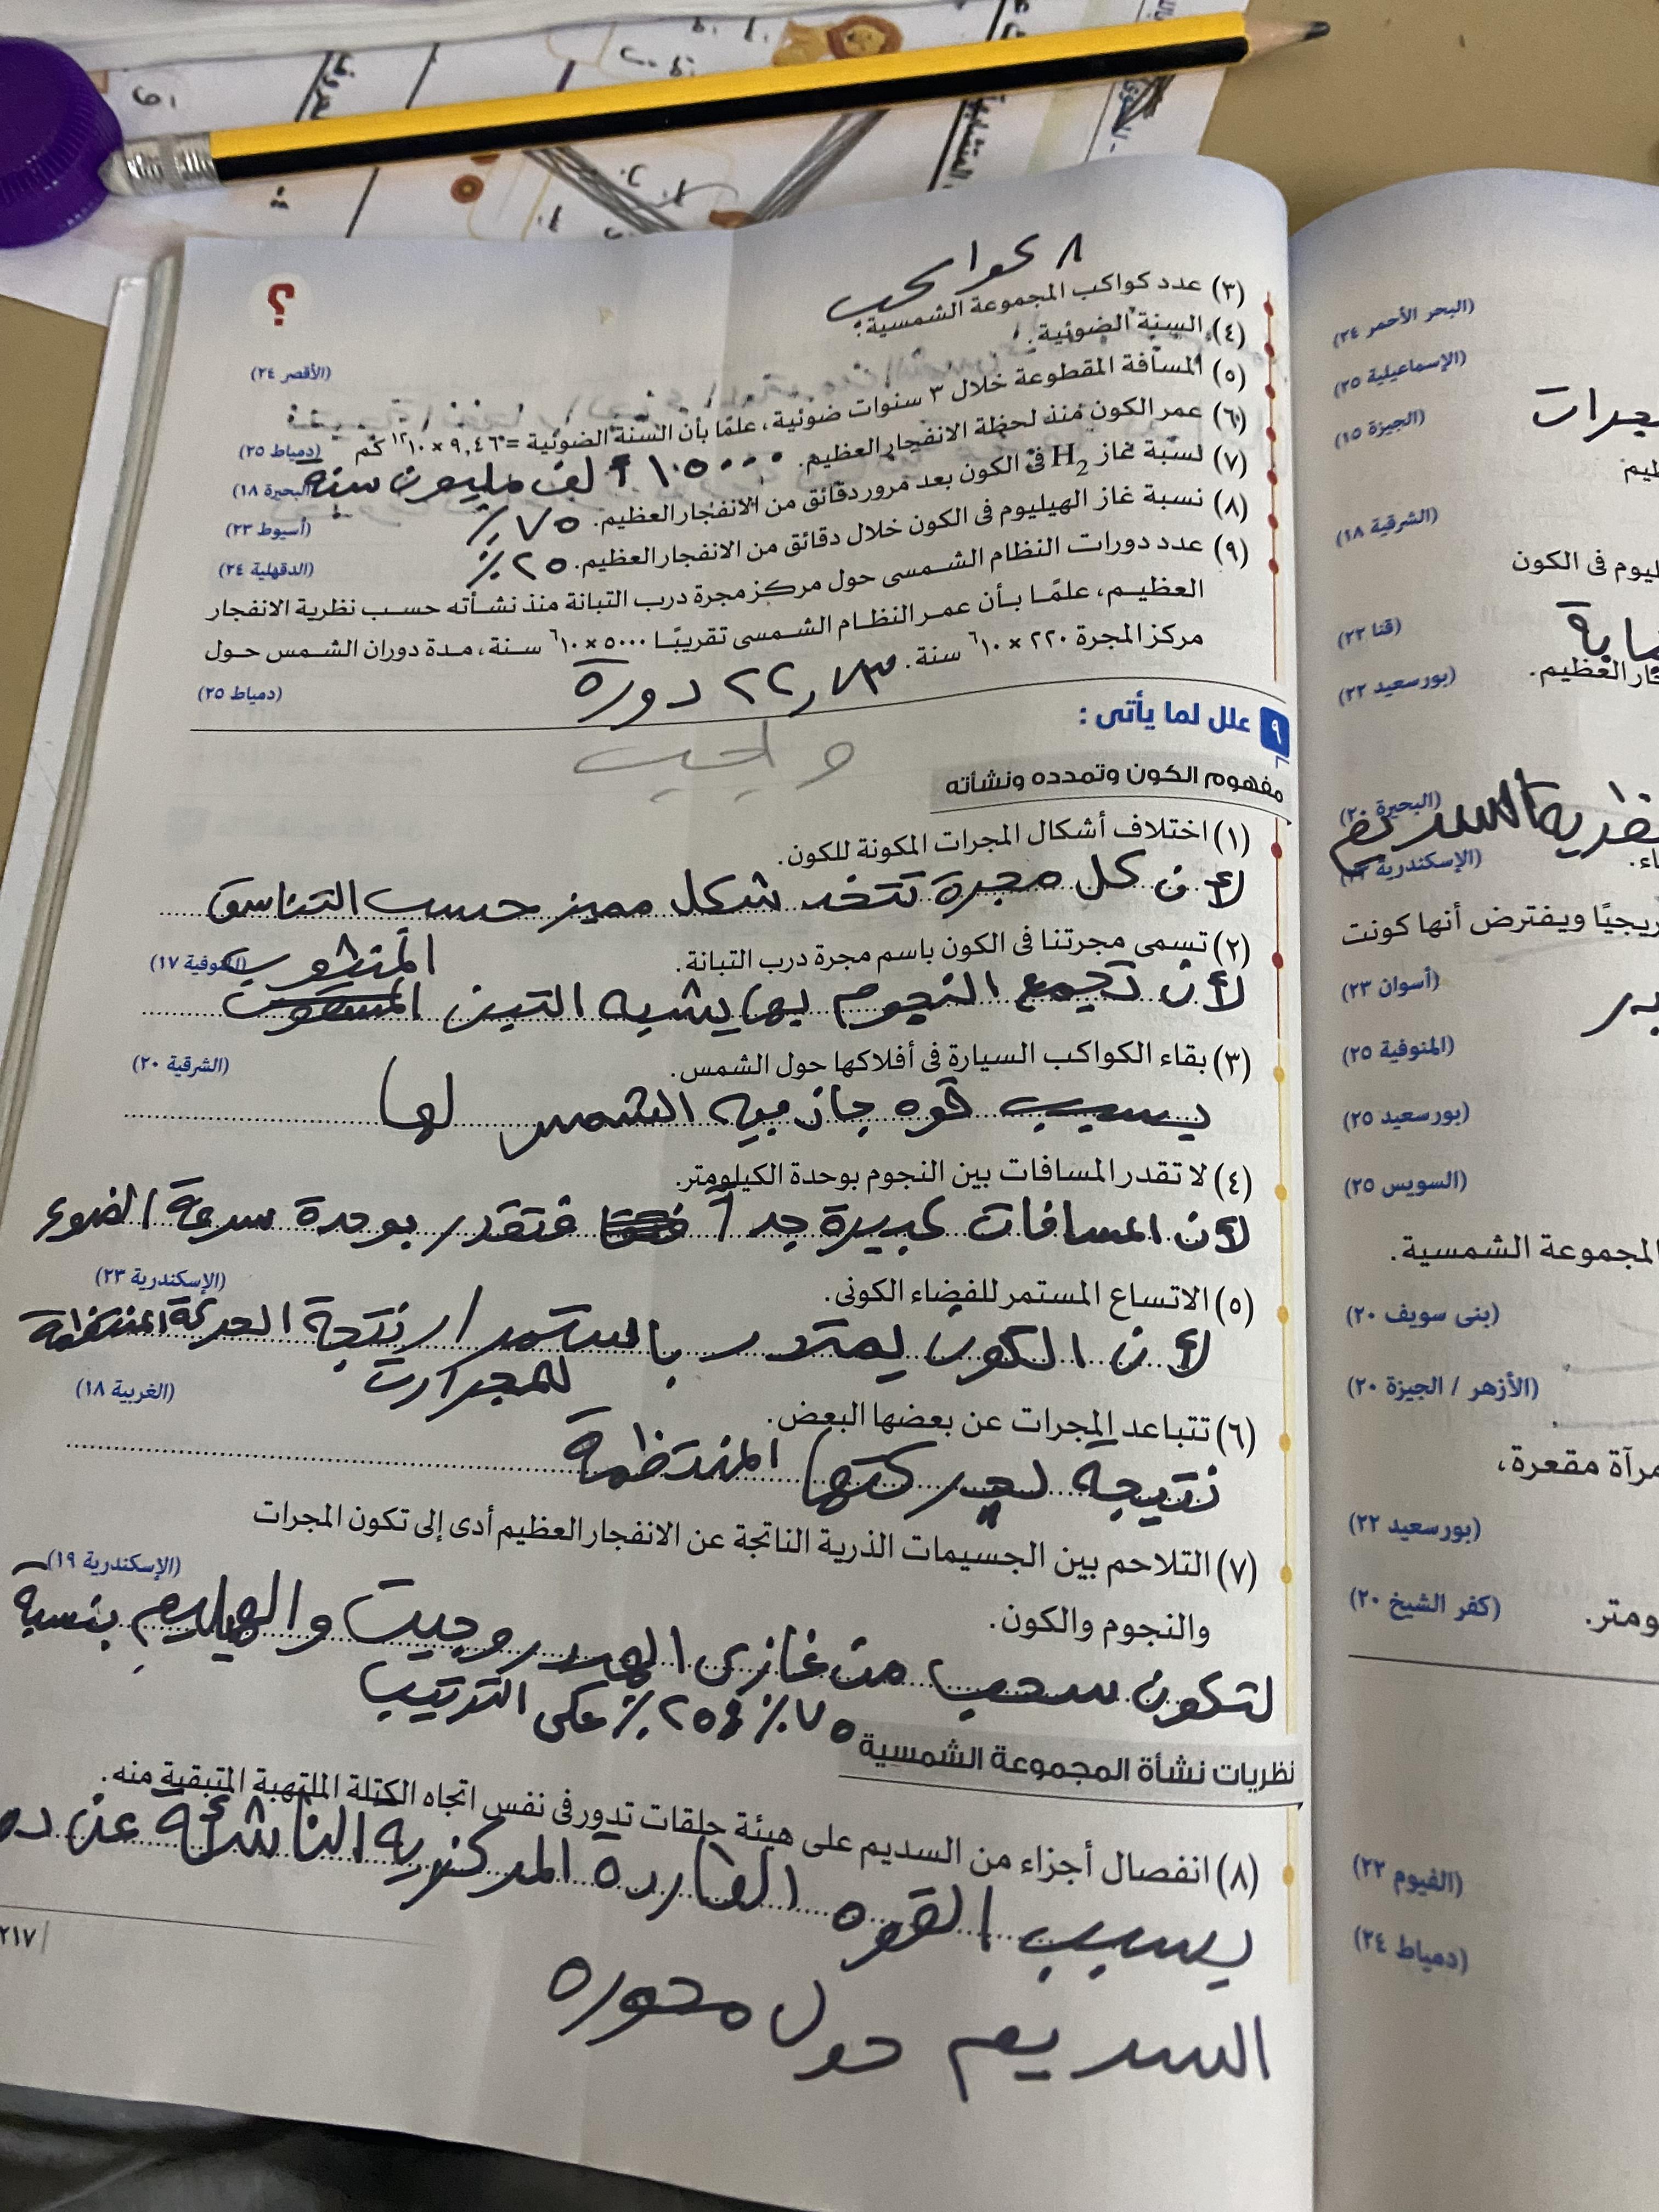 ٨ كواكب
(٣) عدد كواكب المجموعة الشمسية.
؟
(٤) السنة الضوئية.
(٥) المسافة المقطوعة خلال ٣ سنوات ضوئية، علمًا بأن السنة الضوئية = ٩,٤٦ × ١٠¹² كم (الأقصر ٢٤)
(٦) عمر الكون منذ لحظة الانفجار العظيم. (دمياط ٢٥)
١٥٠٠٠ ألف مليون سنة
(٧) نسبة غاز H₂ فى الكون بعد مرور دقائق من الانفجار العظيم. ٧٥٪ (البحيرة ١٨)
(٨) نسبة غاز الهيليوم فى الكون خلال دقائق من الانفجار العظيم. ٢٥٪ (أسيوط ٢٣)
(٩) عدد دورات النظام الشمسى حول مركز مجرة درب التبانة منذ نشأته حسب نظرية الانفجار (الدقهلية ٢٤)
العظيم، علمًا بأن عمر النظام الشمسى تقريبًا ٥٠٠٠ × ١٠⁶ سنة، مدة دوران الشمس حول
مركز المجرة ٢٢٠ × ١٠⁶ سنة.
٢٢,٧٣ دورة (دمياط ٢٥)
٩ علل لما يأتى :
واجب
مفهوم الكون وتمدده ونشأته
(١) اختلاف أشكال المجرات المكونة للكون.
لأن كل مجرة تتخد شكل مميز حسب التناسق
(٢) تسمى مجرتنا فى الكون باسم مجرة درب التبانة. (المنوفية ١٧)
لأن تجمع النجوم بها يشبه التبن المنثور
(٣) بقاء الكواكب السيارة فى أفلاكها حول الشمس. (الشرقية ٢٠)
بسبب قوه جاذبيه الشمس لها
(٤) لا تقدر المسافات بين النجوم بوحدة الكيلومتر.
لأن المسافات كبيرة جداً فتقدر بوحدة سرعة الضوء
(٥) الاتساع المستمر للفضاء الكونى. (الإسكندرية ٢٣)
لأن الكون يمتدد باستمرار نتيجة الحركة المنتظمة
للمجرات
(٦) تتباعد المجرات عن بعضها البعض. (الغربية ١٨)
نتيجه لحركتها المنتظمة
(٧) التلاحم بين الجسيمات الذرية الناتجة عن الانفجار العظيم أدى إلى تكون المجرات
والنجوم والكون. (الإسكندرية ١٩)
لتكون سحب من غازى الهيدروجين والهيليوم بنسبة
٧٥٪ ٢٥٪ على الترتيب
نظريات نشأة المجموعة الشمسية
(٨) انفصال أجزاء من السديم على هيئة حلقات تدور فى نفس اتجاه الكتلة الملتهبة المتبقية منه.
بسبب القوه الطاردة المركزية الناشئة عن
السديم حول محوره
٢١٧
(البحر الأحمر ٢٤)
(الإسماعيلية ٢٥)
(الجيزة ١٥)
(الشرقية ١٨)
ليوم فى الكون
(قنا ٢٢)
ار العظيم.
(بورسعيد ٢٢)
(البحيرة ٢٠)
نظرية السديم
ريجيًا ويفترض أنها كونت
(أسوان ٢٣)
(المنوفية ٢٥)
(بورسعيد ٢٥)
(السويس ٢٥)
المجموعة الشمسية.
(بنى سويف ٢٠)
(الأزهر / الجيزة ٢٠)
مرآة مقعرة،
(بورسعيد ٢٢)
ومتر.
(كفر الشيخ ٢٠)
(الفيوم ٢٢)
(دمياط ٢٤)